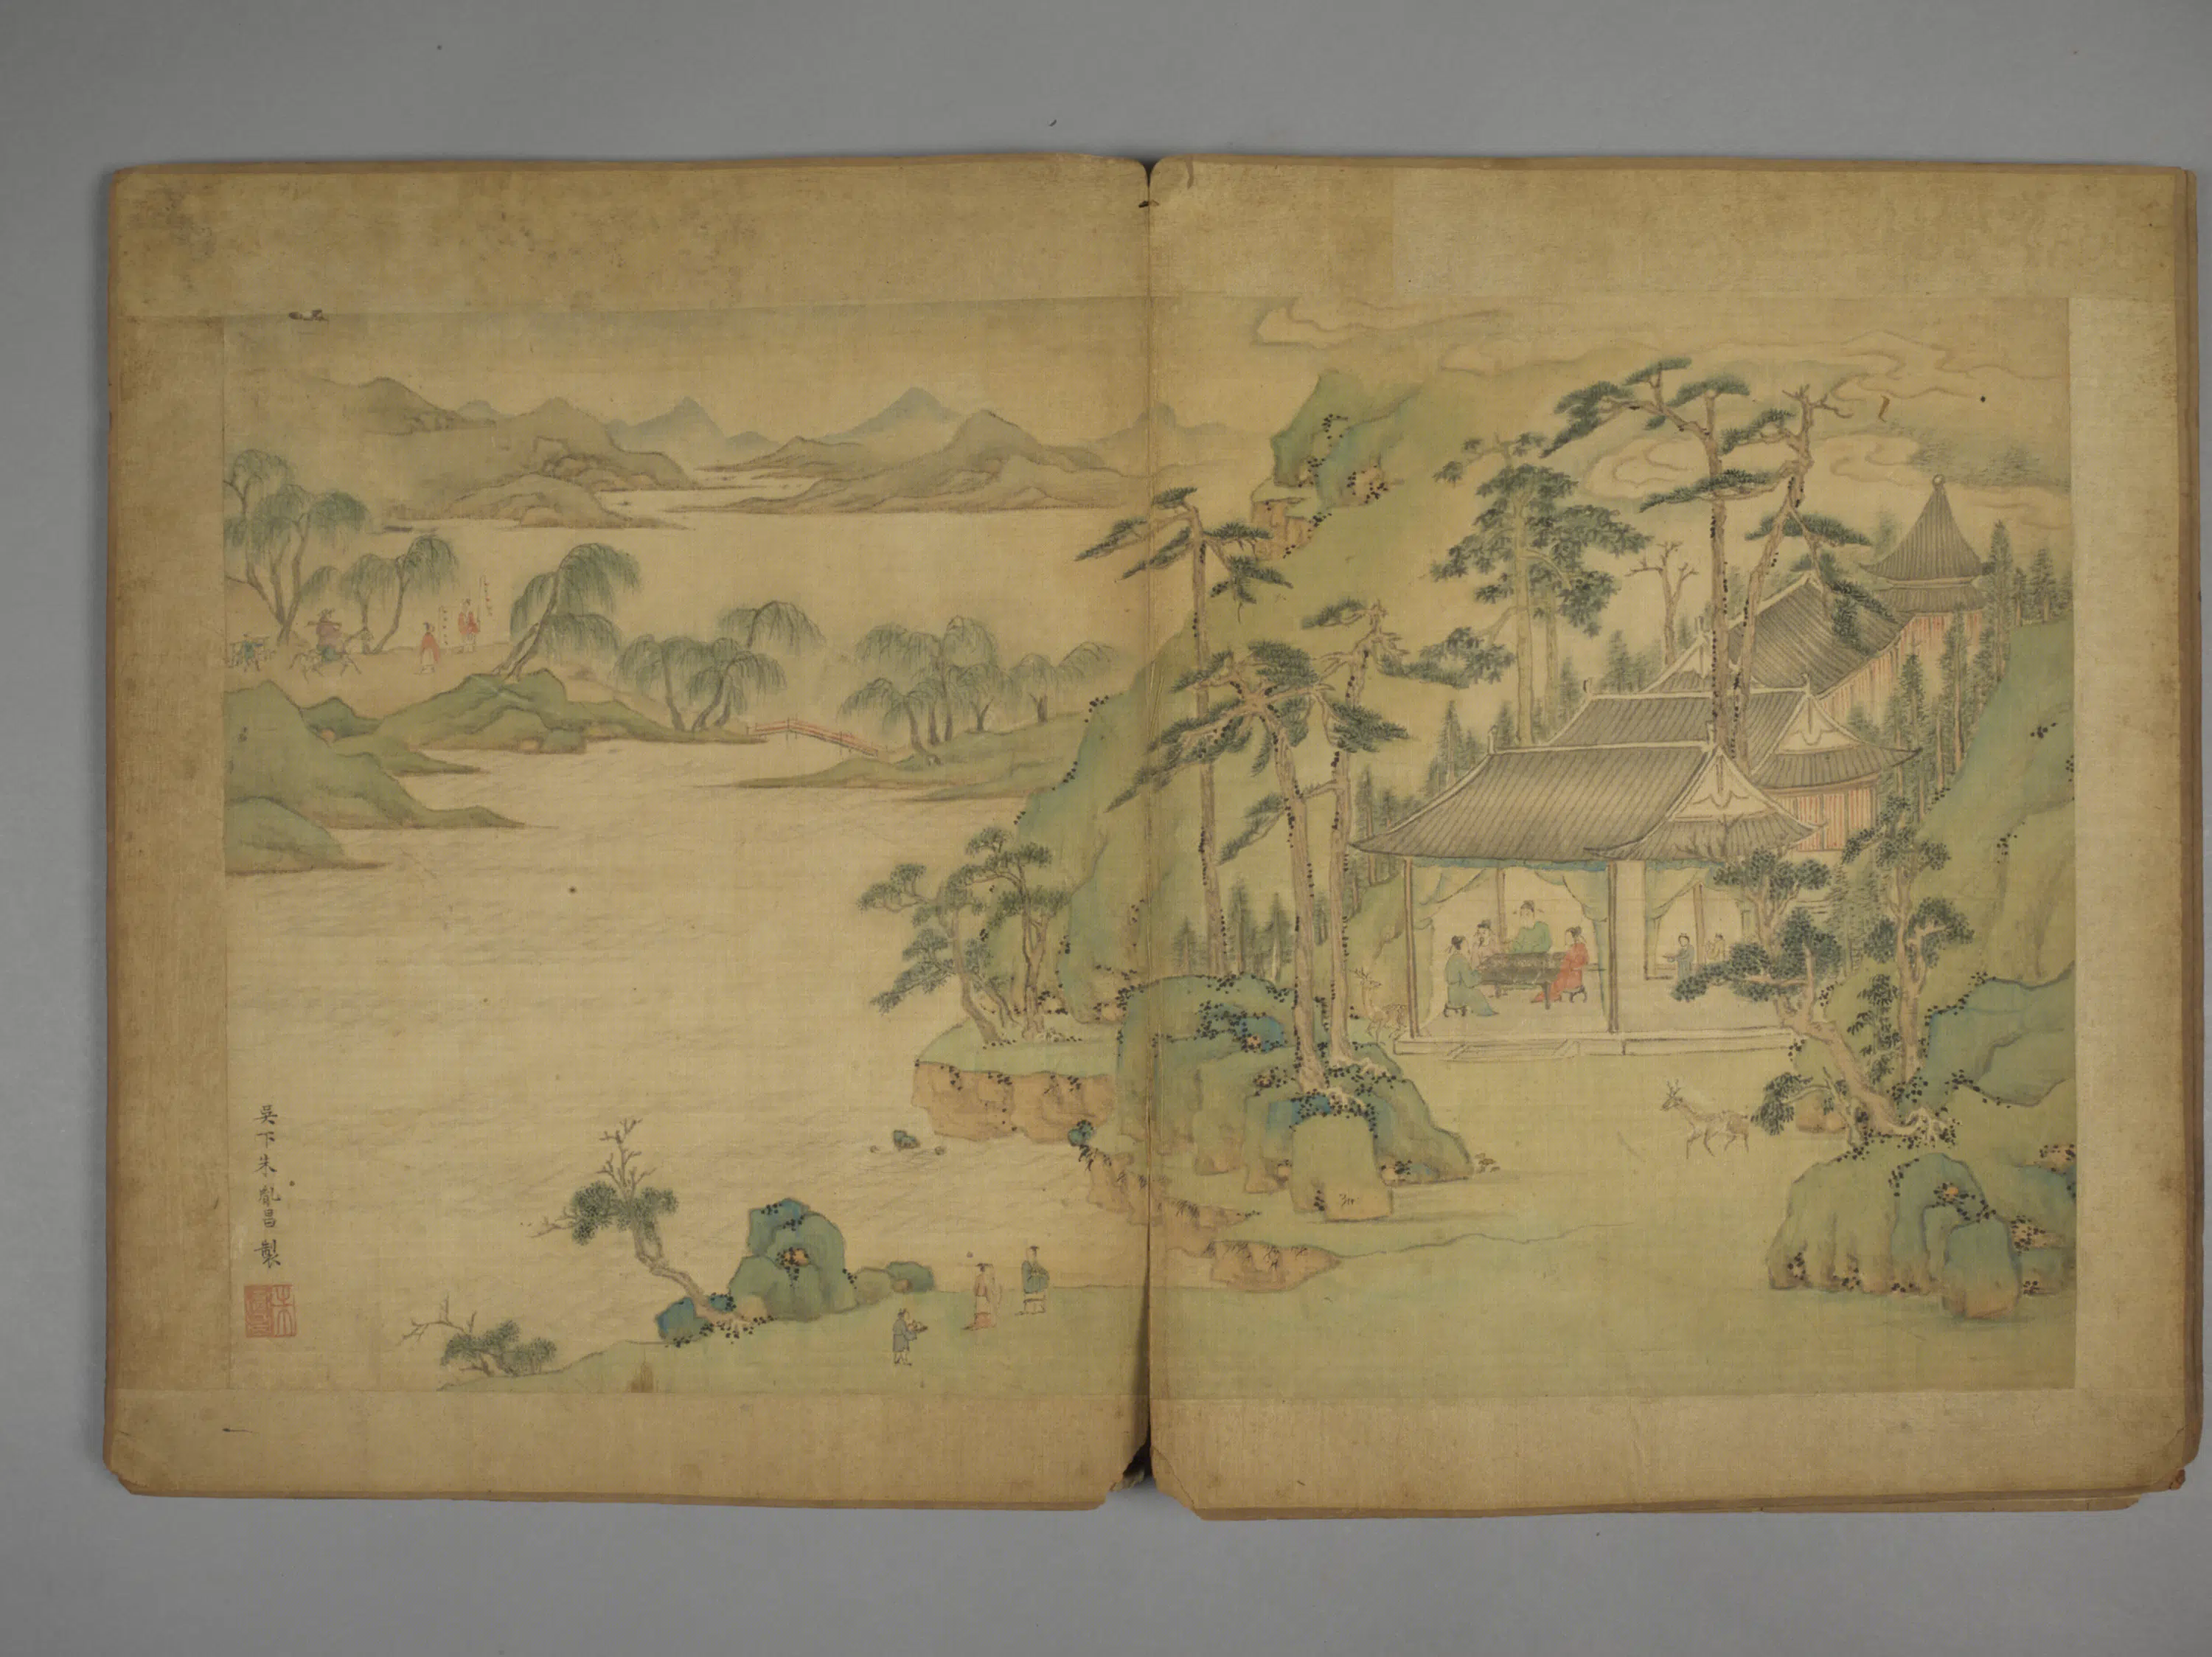 吳下朱胤昌製